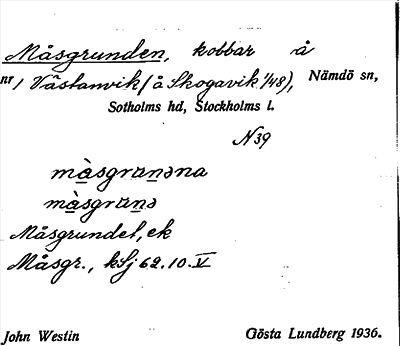 Måsgrunden, kobbar å
nr 1 Västanvik (å Skogavik 1/48), Nämdö sn,
Sotholms hd, Stockholms l.
N39
màsgrunəna
màsgrunə
Måsgrundet, ek
Måsgr., kSj 62.10.V
John Westin
Gösta Lundberg 1936.